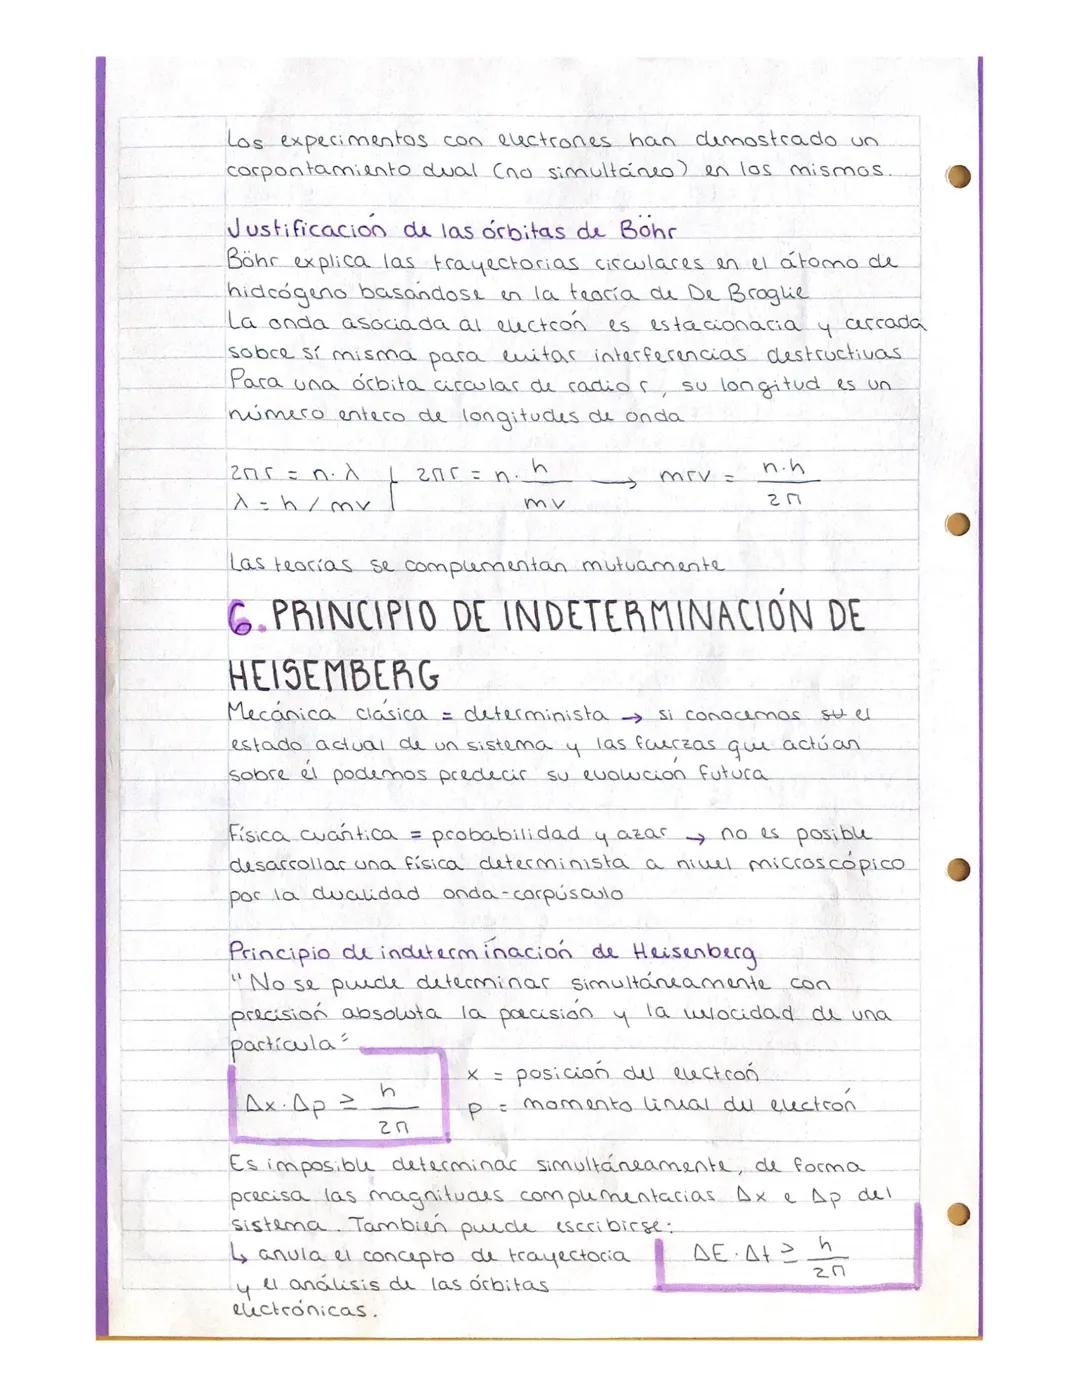 Los experimentos con electrones han demostrado un
corpontamiento dual (no simultáneo) en los mismos.
Justificación de las órbitas de Böhr
Böhr explica las trayectorias circulares en el átomo de
hidrógeno basándose en la teoría de De Broglie
La onda asociada al electrón es estacionaria y cerrada
sobre sí misma para evitar interferencias destructivas
Para una órbita circular de radio r, su longitud es un
número entero de longitudes de onda
2πr = n·λ } 2πr = n· h/mv → mrv = n·h/2π
λ = h / mv
Las teorías se complementan mutuamente
6. PRINCIPIO DE INDETERMINACIÓN DE
HEISEMBERG
Mecánica clásica = determinista → si conocemos su el
estado actual de un sistema y las fuerzas que actúan
sobre él podemos predecir su evolución futura
Física cuántica = probabilidad y azar → no es posible
desarrollar una física determinista a nivel microscópico
por la dualidad onda-corpúsculo
Principio de indeterminación de Heisenberg
"No se puede determinar simultáneamente con
precisión absoluta la precisión y la velocidad de una
partícula"
x = posición del electrón
Δx·Δp ≥ h/2π
p = momento lineal del electrón
Es imposible determinar simultáneamente, de forma
precisa las magnitudes complementarias Δx e Δp del
sistema. También puede escribirse:
↳ anula el concepto de trayectoria
y el análisis de las órbitas
electrónicas.
ΔE·Δt ≥ h/2π